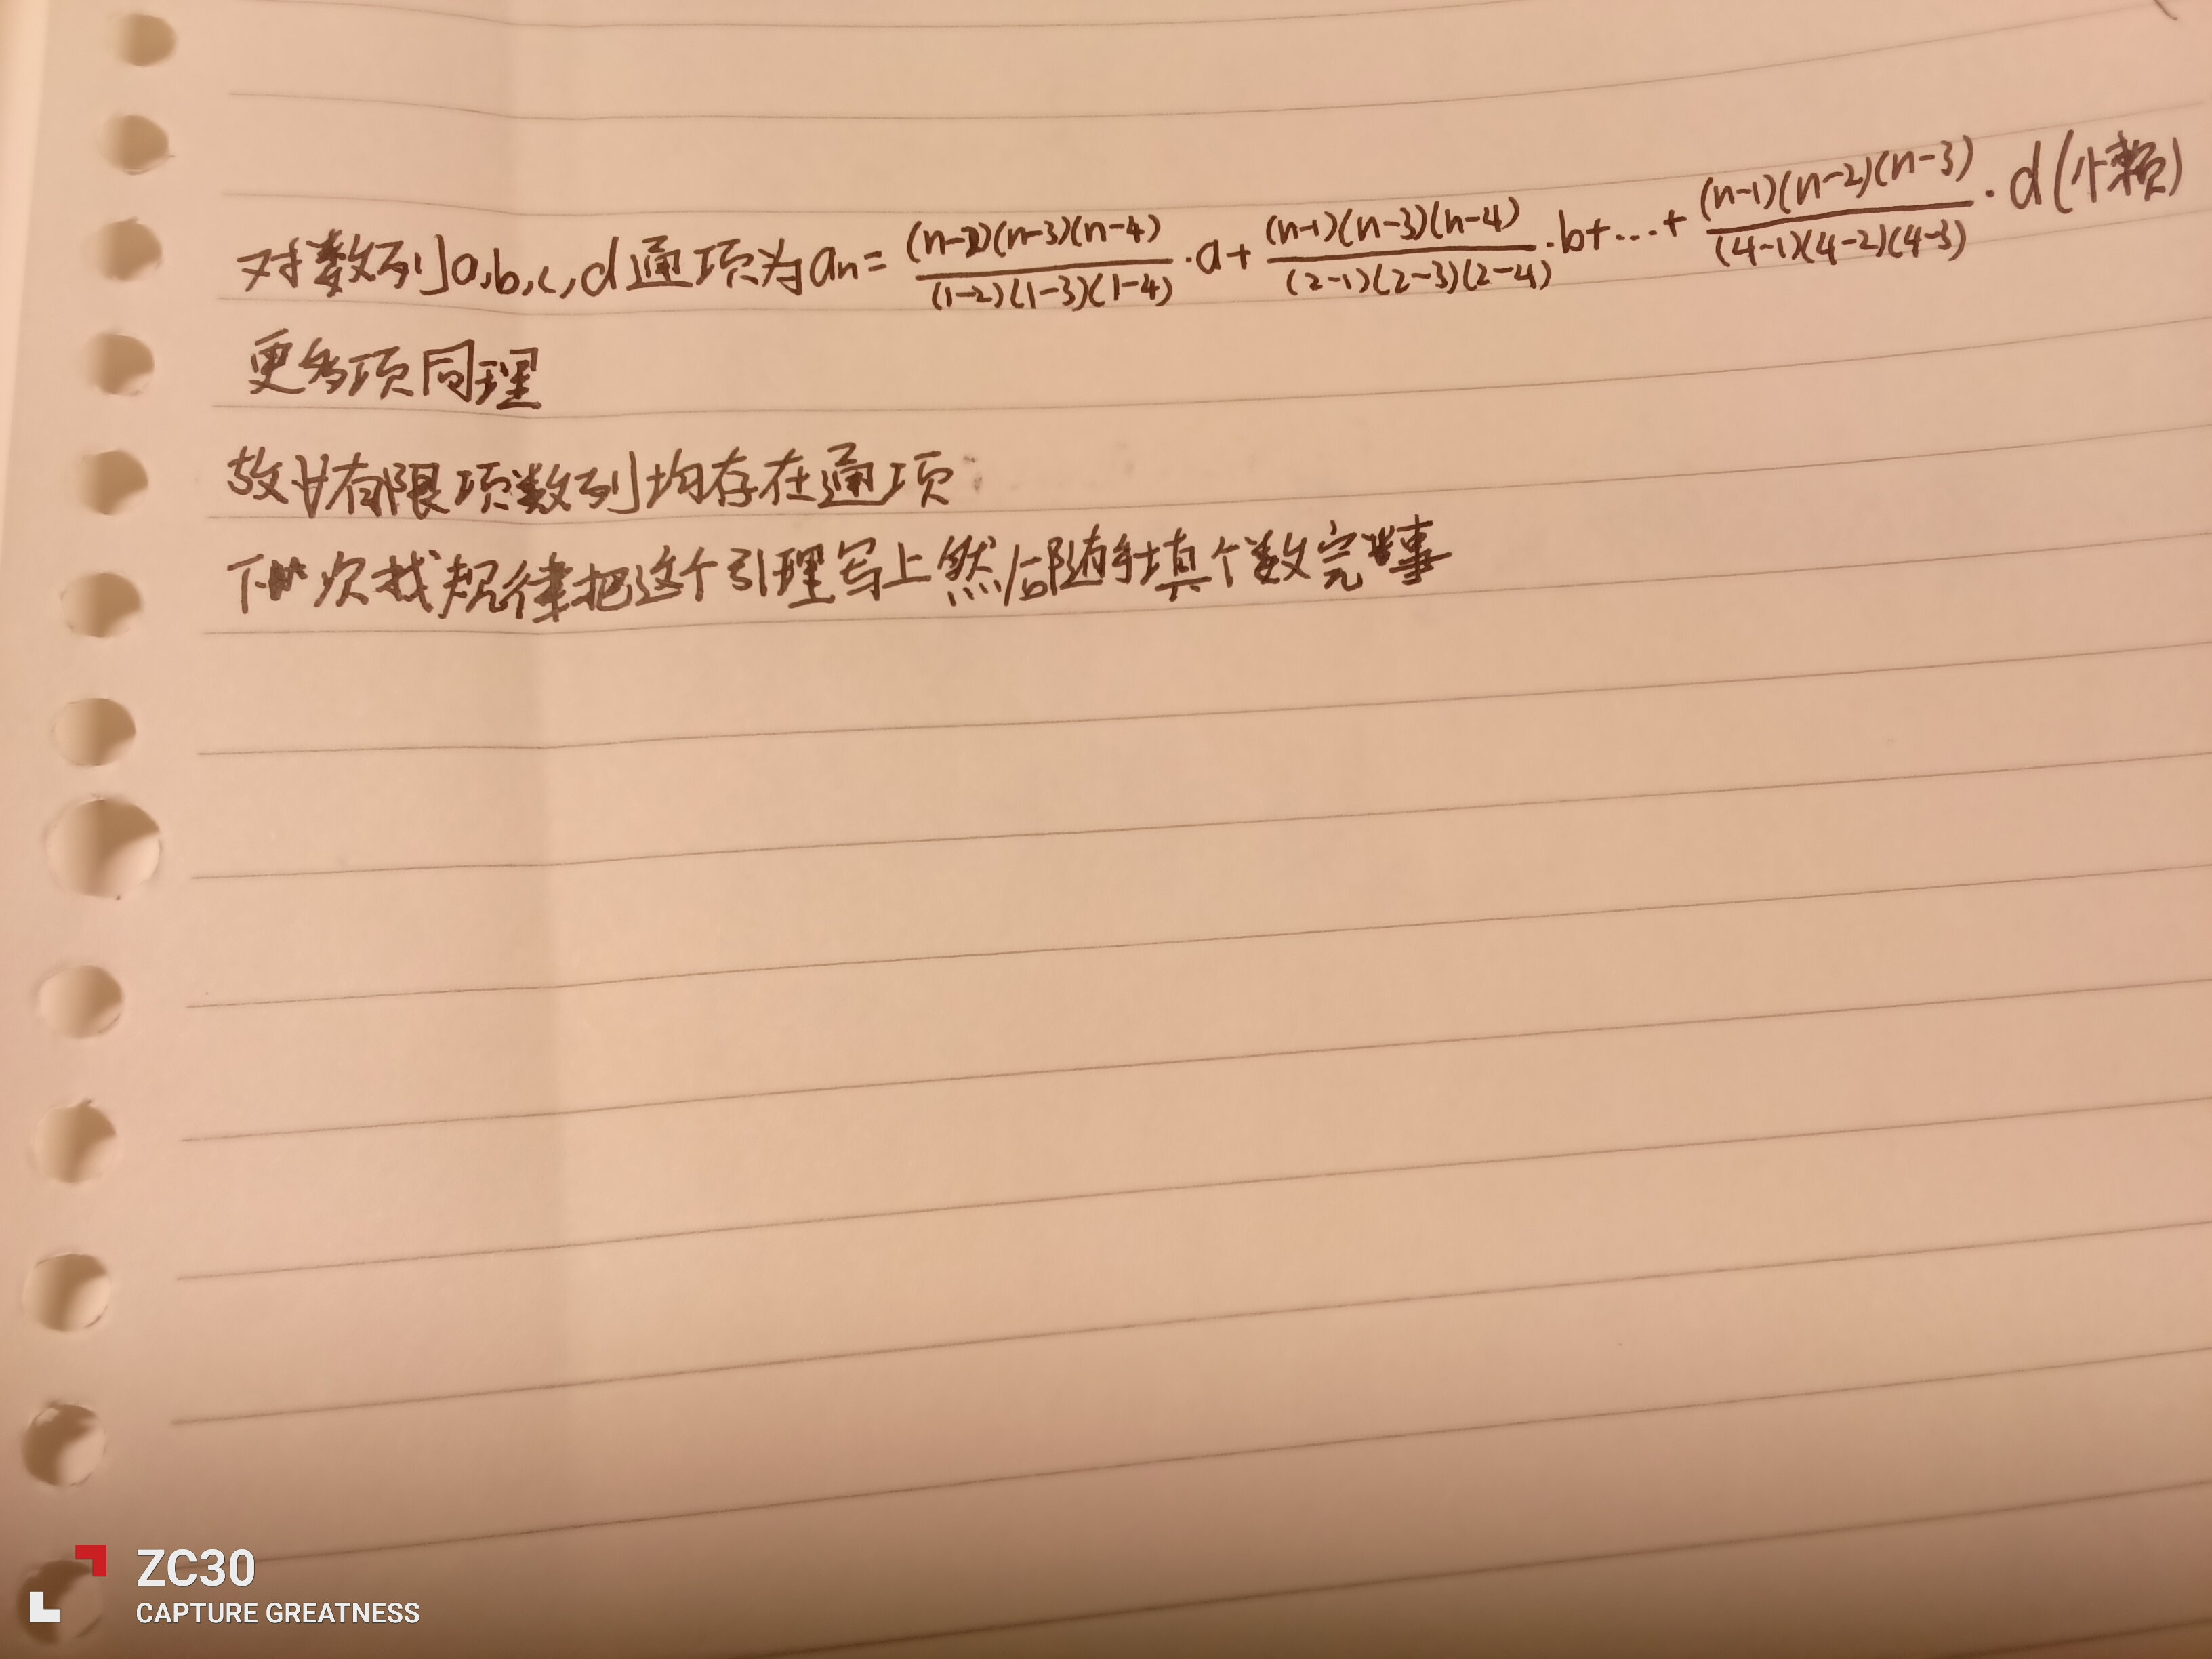 对数列a,b,c,d通项为aₙ=\frac{(n-2)(n-3)(n-4)}{(1-2)(1-3)(1-4)}·a+\frac{(n-1)(n-3)(n-4)}{(2-1)(2-3)(2-4)}·b+...+\frac{(n-1)(n-2)(n-3)}{(4-1)(4-2)(4-3)}·d(不赖)
更多项同理
故∀有限项数列均存在通项
下次找规律把这个引理写上然后随手填个数完事
ZC30
CAPTURE GREATNESS